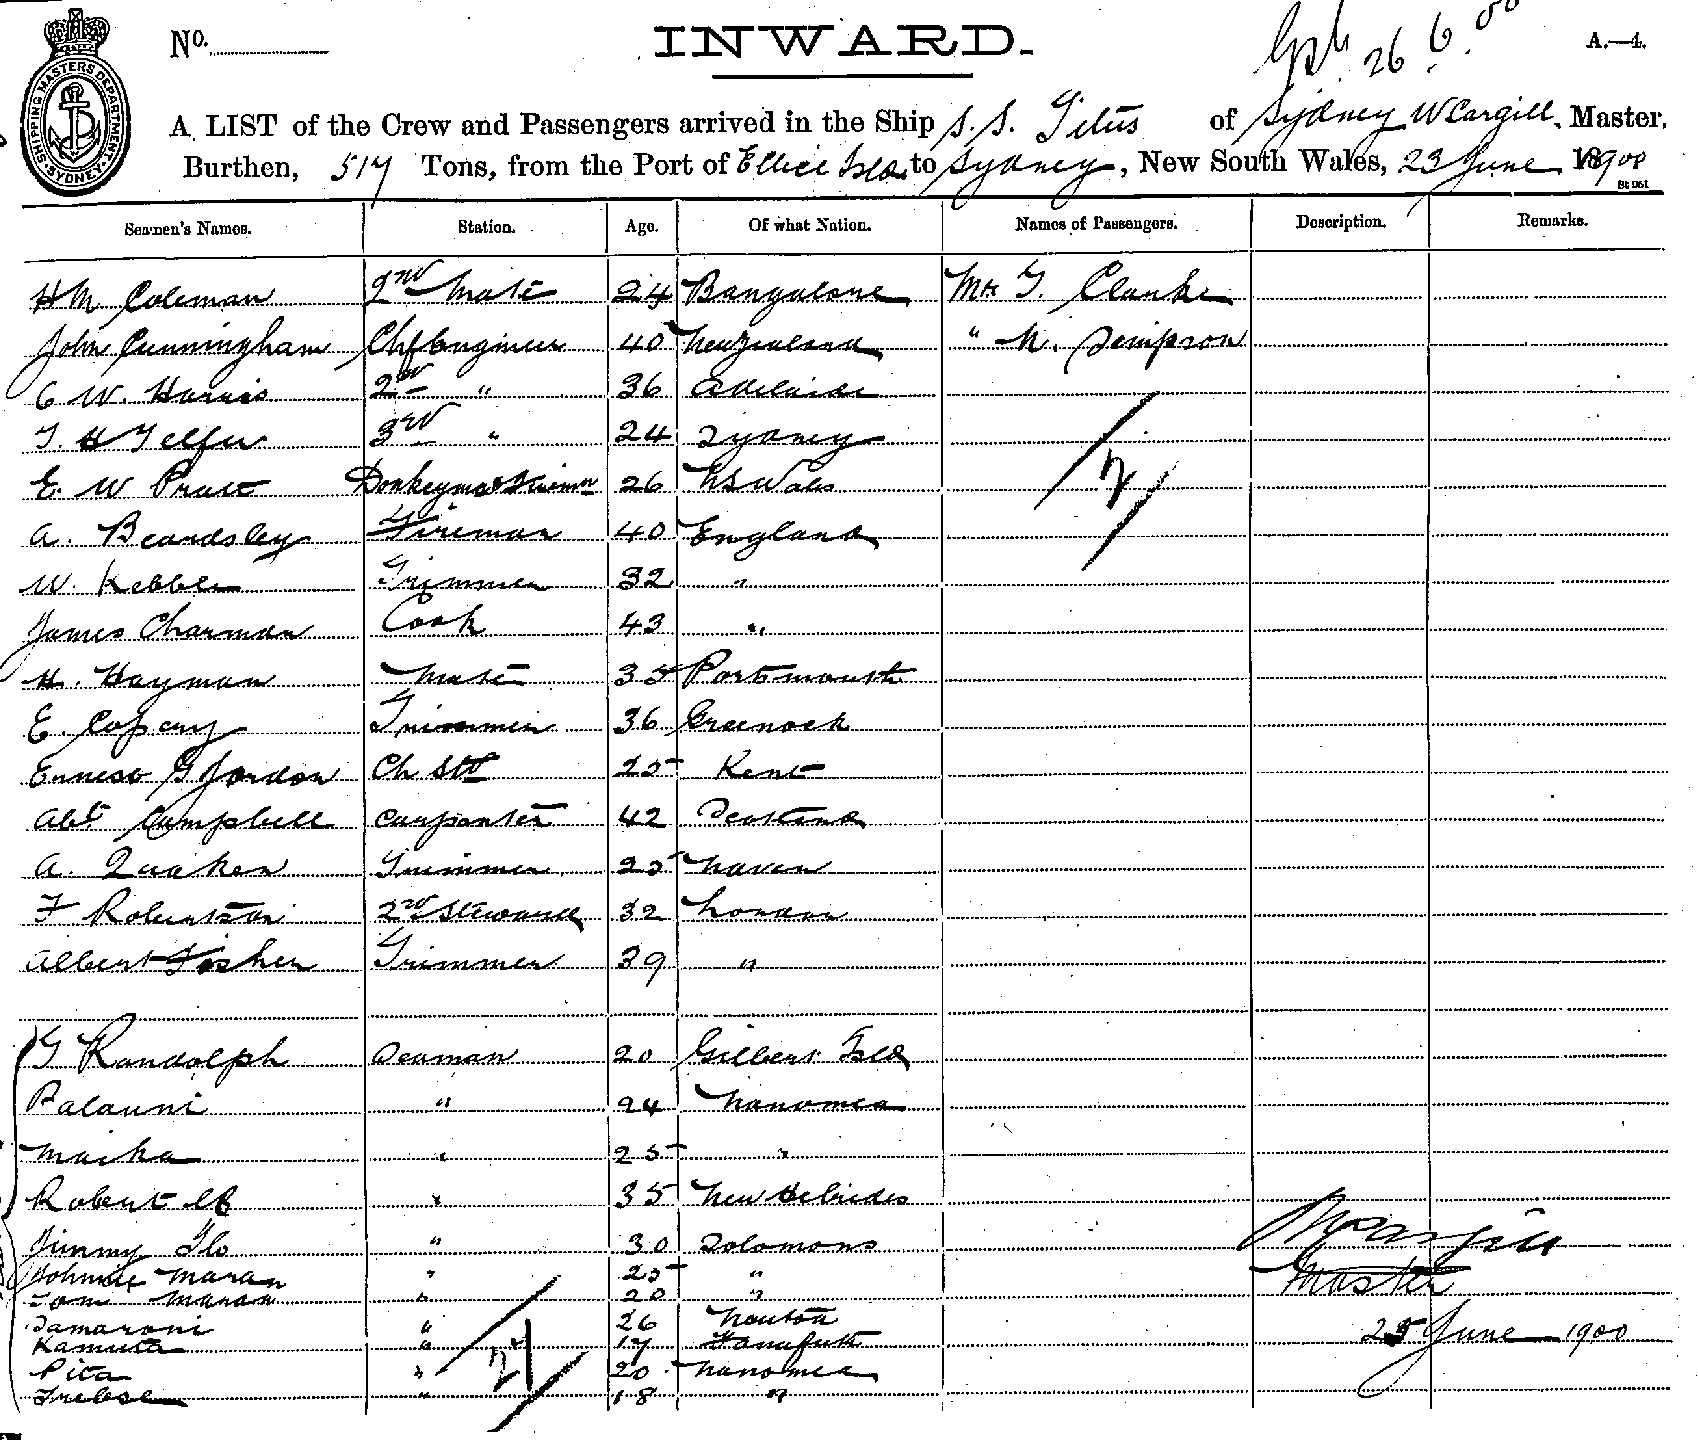 No.
INWARD.
26 6 00
A.—4.
SHIPPING MASTERS DEPARTMENT SYDNEY
A LIST of the Crew and Passengers arrived in the Ship S.S. Titus of Sydney W Cargill, Master,
Burthen, 517 Tons, from the Port of Ellice Isds to Sydney, New South Wales, 23 June 1900
Seamen's Names. Station. Age. Of what Nation. Names of Passengers. Description. Remarks.
H M Coleman 2nd Mate 24 Bangalore Mr G. Clarke
John Cunningham Chf Engineer 40 New Zealand " N. Simpson
C W. Harris 2nd " 36 Adelaide
T. H Telfer 3rd " 24 Sydney
E. W Pratt Donkeyman & Fireman 26 N S Wales
2
A. Beardsley Fireman 40 England
W. Kebble Trimmer 32 "
James Charman Cook 43 "
H. Hayman Mate 35 Portsmouth
E. Trimmer 36 Greenock
G Jordon Ch Std 25 Kent
Abt Campbell Carpenter 42 Scotland
A. Quaken Trimmer 25
F Robertson 2nd Steward 32 London
Albert Fisher Trimmer 39 "
G Randolph Seaman 20 Gilbert Isld
Balauni " 24 Nanomea
Maika " 25 "
Robert " 35 New Hebrides
Jimmy Glo " 30 Solomons
W Cargill
Johnnie Maran " 25 "
Master
Tom Maran " 20 "
Samaroni " 26
25 June 1900
Kamuta " 17 Funafuti
Pita " 20 Nanomea
" 18 "